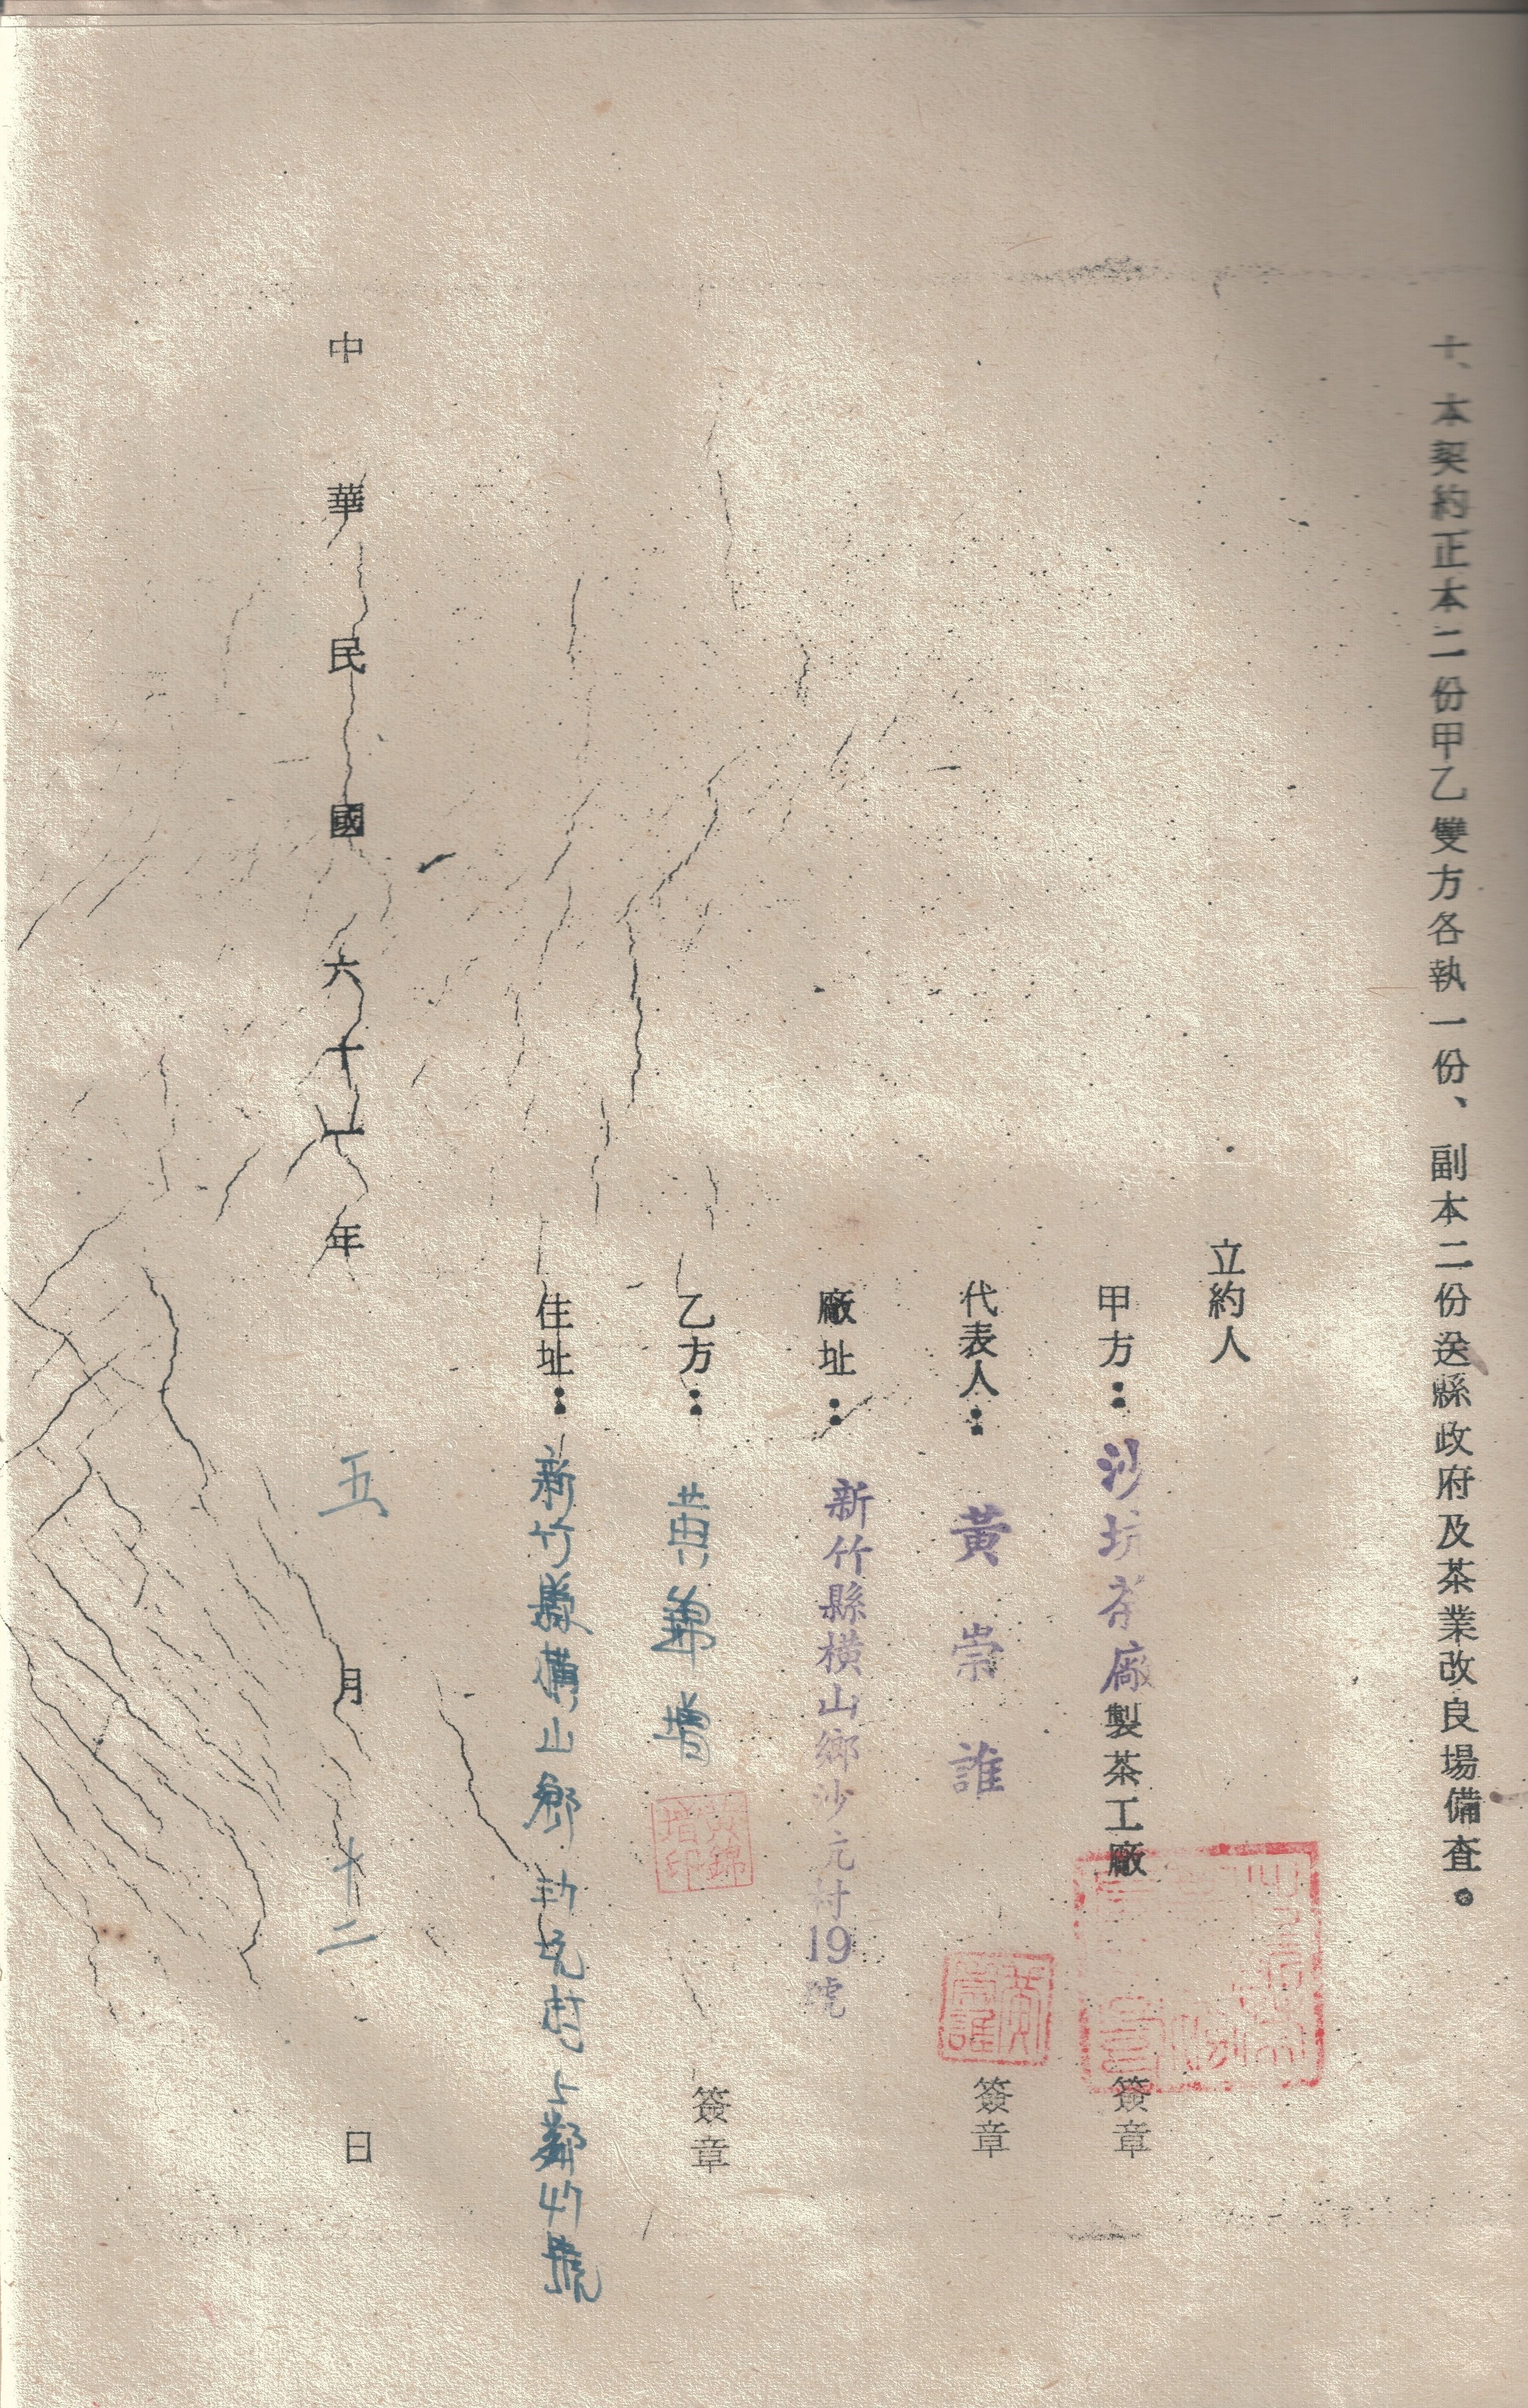 十、本契約正本二份甲乙雙方各執一份、副本二份送縣政府及茶業改良場備查。
立約人
甲方：沙坑茶廠製茶工廠 簽章
代表人：黃崇誰 黃崇誰 簽章
廠址：新竹縣橫山鄉沙元村19號
乙方：黃 增 黃錦增印 簽章
住址：新竹縣橫山鄉 坑村 鄰 號
中華民國六十 年 五 月 十二 日